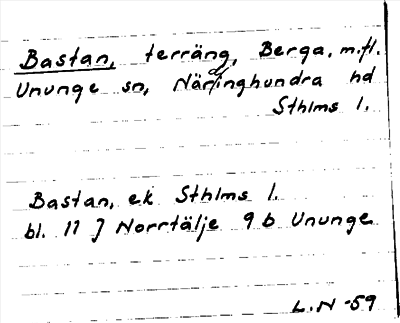 Bastan, terräng, Berga, m.fl.
Ununge sn, Närdinghundra hd
Sthlms l.
Bastan, ek Sthlms l.
bl. 11 J Norrtälje 9 b Ununge
L.N -59